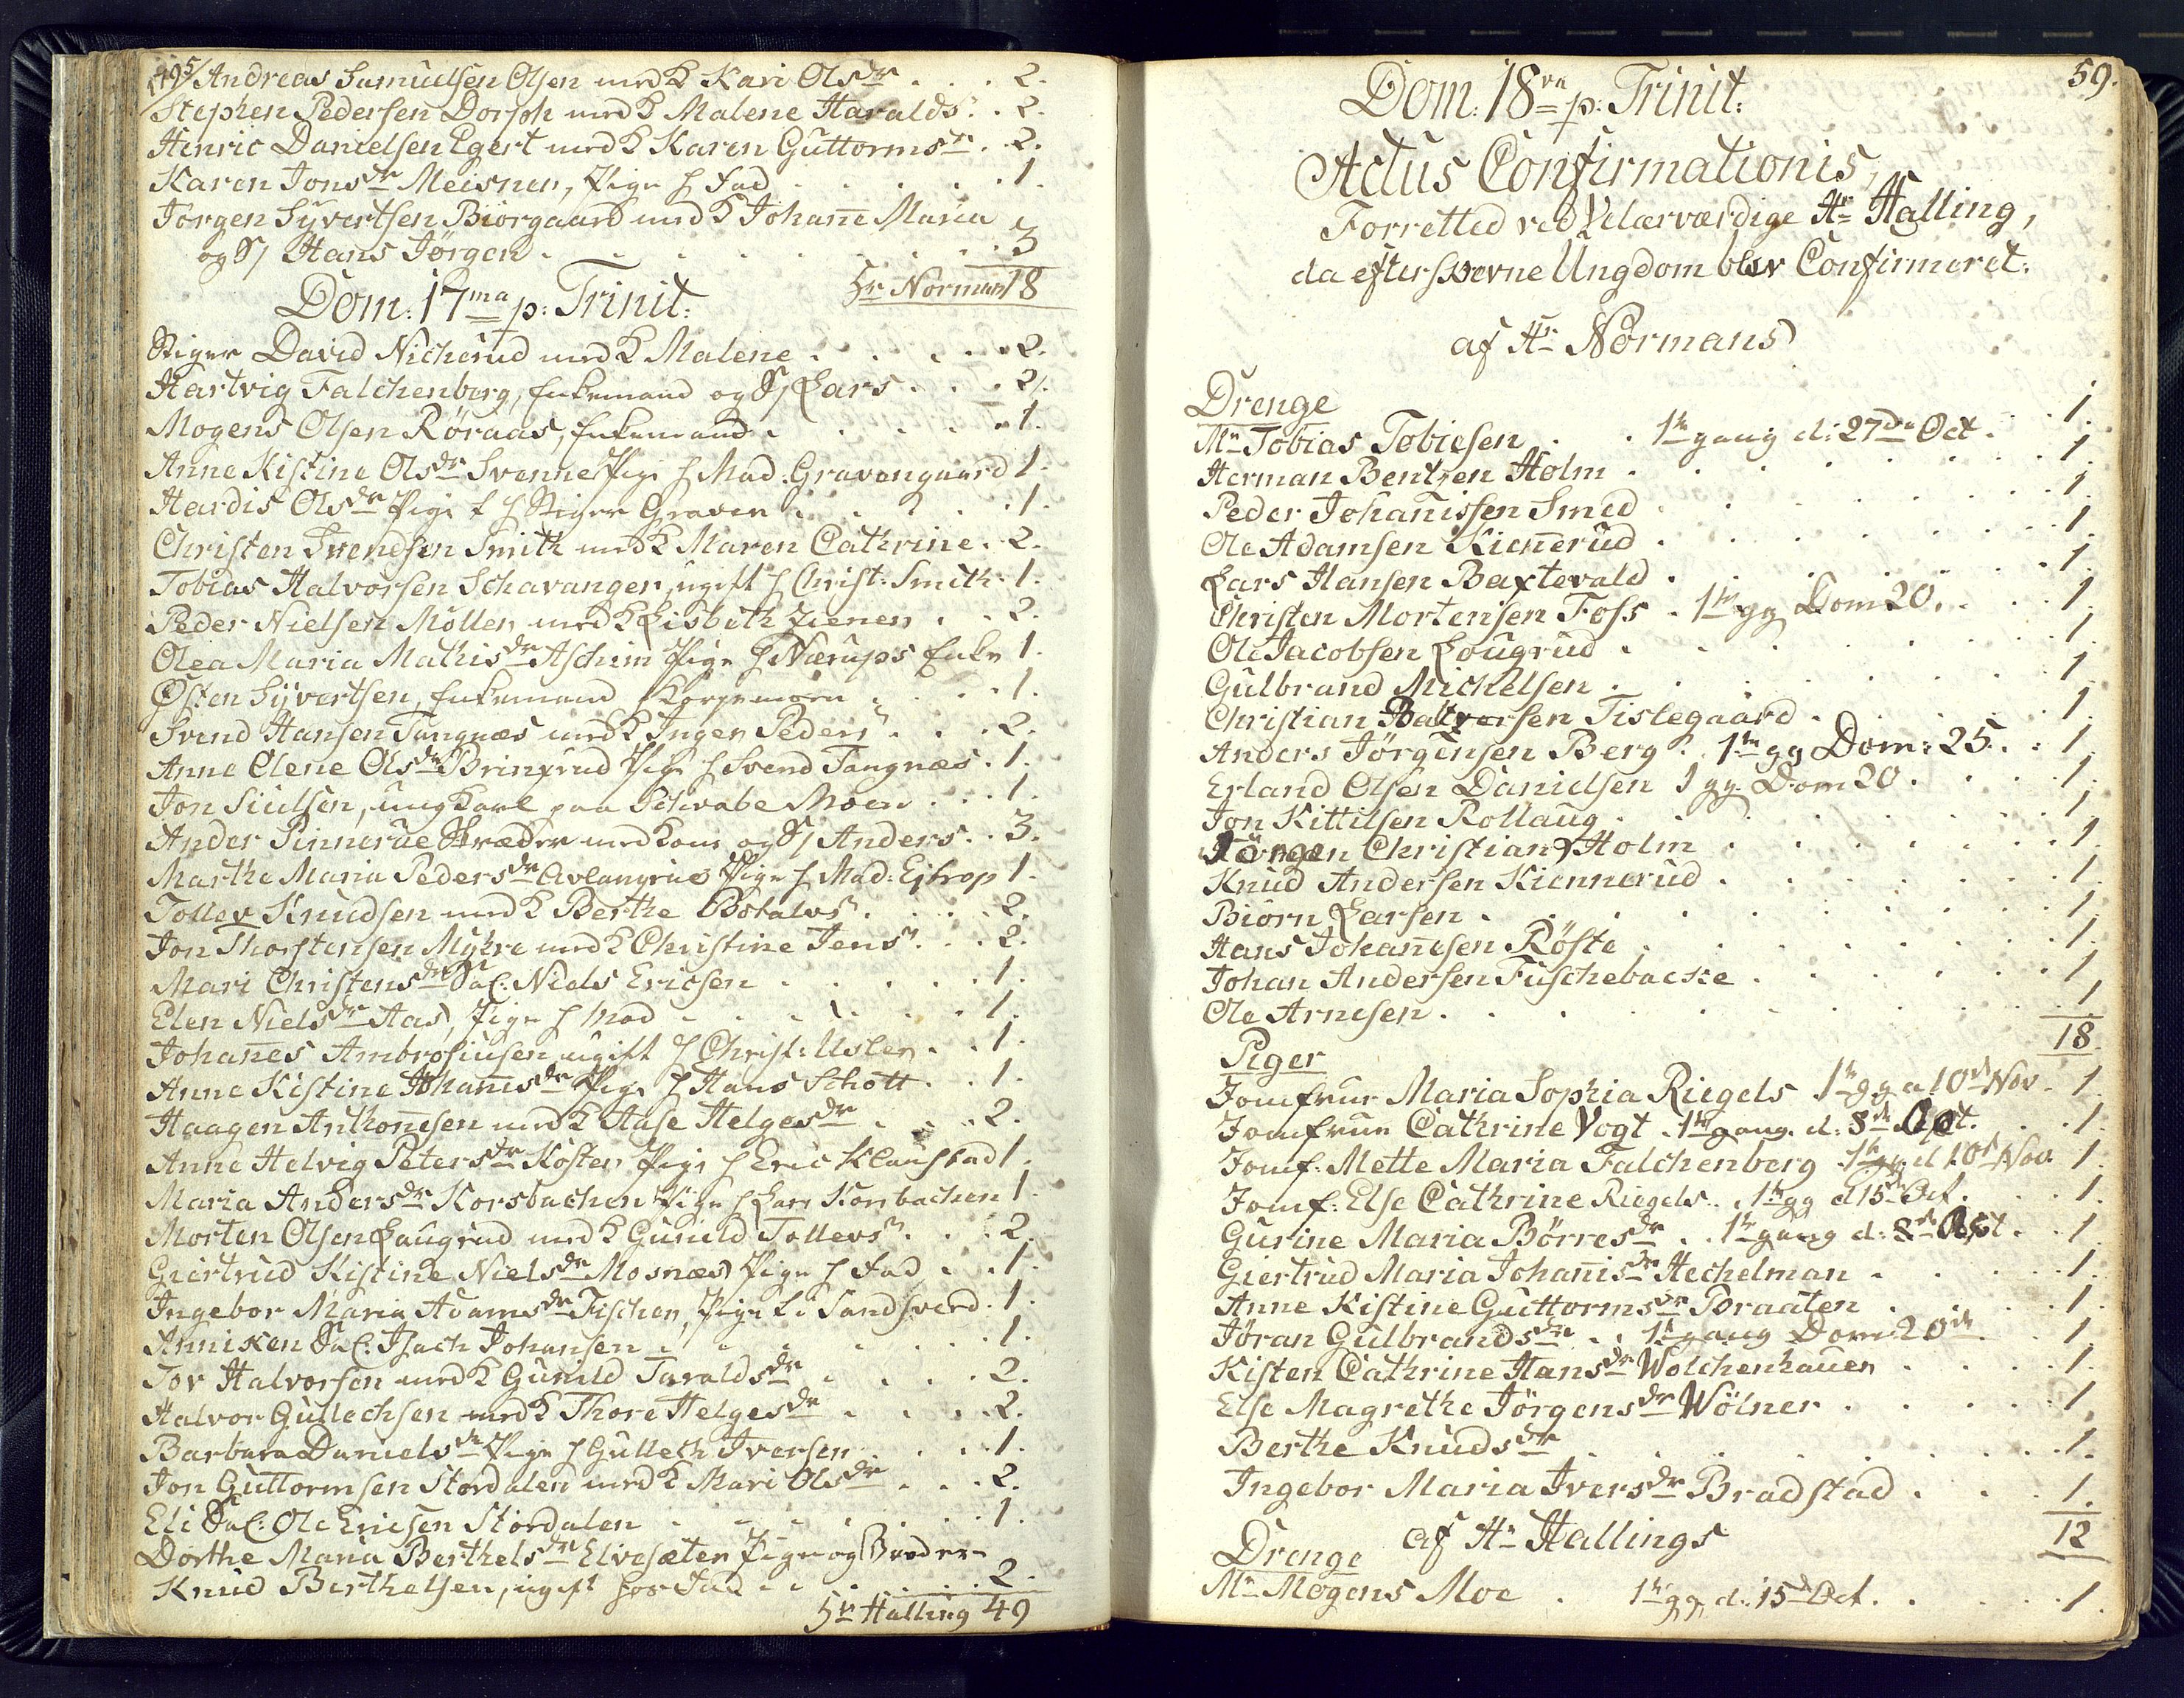 Andreas Samuelsen Olsen med K Kari Olsdr . . . 2.
Stephen Pedersen Dorph med K Malene Haralds . . 2.
Henric Danielsen Egert med K Karen Guttormsr . 2.
Karen Jonsdr Meisner, Pige h Fad . . . . 1.
Jørgen Syvertsen Biørgaard med K Johan̄e Maria
og S/ Hans Jørgen . . . . . . . 3
Hr Norman 18
Dom: 17ma p: Trinit:
Stiger David Nicherud med K Malene . . . . 2.
Hartvig Falchenberg, Enkemand og S/ Lars . . . 2.
Mogens Olsen Røraas, Enkemand . . . . . 1.
Anne Kistine Olsdr Svenne Pige h Mad. Gravengaard 1.
Hardis Olsdr Pige h Stiger Graven . . . 1.
Christen Svendsen Smith med K Maren Cathrine . 2.
Tobias Halvorsen Schavanger, ugift h Christ: Smith . 1.
Peder Nielsen Møller med K Lisbeth Zienen . . 2.
Olea Maria Mathisdr Aschim Pige h Nærups Enke 1.
Østen Syvertsen, Enkemand . . . . 1.
Svend Hansen Tangnæs med K Inger Peders . . . 2.
Anne Olene Olsdr Brinxrud Pige h Svend Tangnæs . 1.
Jon Siulsen, ung Karl paa Schwabe Moen . . . 1.
Ander Pinnerue Skræder med Kone og S/ Anders . . 3.
Marthe Maria Pedersdr Pige h Mad: Ejtrop 1.
Tollev Knudsen med K Berthe Botalvs . . . . 2.
Jon Thorstensen Myhre med K Christine Jens . . . 2.
Mari Christensdr Sal: Niels Ericsen . . . . . 1.
Elen Nielsdr Aas, Pige h Mod . . . . 1.
Johan̄es Ambrosiusen ugift h Christ: Usler . . 1.
Anne Kistine Johan̄isdr Pige h Hans Schott . . 1.
Haagen Anthon̄esen med K Aase Helgesdr . . . 2.
Anne Helvig Petersdr Køster Pige h Eric Klaustad 1.
Maria Andersdr Korsbachen Pige h Lars Korsbachen 1.
Morten Olsen Laugrud med K Gunild Tollevs . . . 2.
Giertrud Kistine Nielsdr Mosnæs Pige h Fad . . 1.
Ingebor Maria Adamsdr Fischer, Pige i Sandsverd . 1.
Anniken Sal: Isach Johansen . . . . 1.
Tov Halvorsen med K Gunild Taraldsdr . . . . 2.
Halvor Gullechsen med K Thore Helgesdr . . . 2.
Barbara Danielsdr Pige h Gulleth Iversen . . . 1.
Jon Guttormsen Stordalen med K Mari Olsdr . . . 2.
Eli Sal: Ole Ericsen Stordalen . . . . . . 1.
Dorthe Maria Berthelsdr Elvesæter Pige og Broder
Knud Berthelsen, ugift hos Fad . . . . . 2.
Hr Halling 49
59.
Dom: 18va p: Trinit:
Actus Confirmationis,
Forretted ved Velærværdige Hr Halling,
da efterskrevne Ungdom blev Confirmeret:
af Hr Normans
Drenge
Mr Tobias Tobiesen . . 1te gang d: 27de Oct . . 1.
Herman Bentzen Holm . . . . . . 1
Peder Johan̄issen Smed . . . . . . 1.
Ole Adamsen Kien̄erud . . . . . . 1.
Lars Hansen Baxtevald . . . . . . 1
Christen Mortensen Foss . 1te gg Dom 20. . . 1.
Ole Jacobsen Lougrud . . . . . . 1
Gulbrand Michelsen . . . . . . 1
Christian Halvorsen Tislegaard . . . . 1.
Anders Jørgensen Berg . 1te gg Dom: 25. . . 1.
Erland Olsen Danielsen 1 gg. Dom 20 . . . 1.
Jon Kittilsen Rollaug . . . . . . 1
Jørgen Christian Holm . . . . . . 1.
Knud Andersen Kiennerud . . . . . . 1.
Biørn Larsen . . . . . . . 1.
Hans Johan̄esen Røste . . . . . . 1.
Johan Andersen Fuschebacke . . . . . 1
Ole Arnesen . . . . . . . 1
18.
Piger
Jomfrue Maria Sophia Riegels 1te gg d 10de Nov . 1
Jomfrue Cathrine Vogt . 1te gang d: 8de . . 1.
Jomf: Mette Maria Falchenberg 1te gg d 10de Nov. 1.
Jomf: Else Cathrine Riegels . . 1te gg d 15de Oct . . . 1.
Gurine Maria Børresdr . . 1te gang d: 8de . . 1.
Giertrud Maria Johan̄isdr Hechelman . . . . 1.
Anne Kistine Guttormsdr Braaten . . . . 1.
Jøran Gulbrandsdr . . 1te gang Dom 20de . . 1.
Kisten Cathrine Hansdr Wolchenhauer . . . 1.
Else Magrethe Jørgensdr Wölner . . . . 1.
Berthe Knudsdr . . . . . . . 1.
Ingebor Maria Iversdr Bradstad . . . 1.
12
af Hr Hallings
Drenge
Mr Mogens Moe . 1te gg d: 15de Oct. . . . 1.